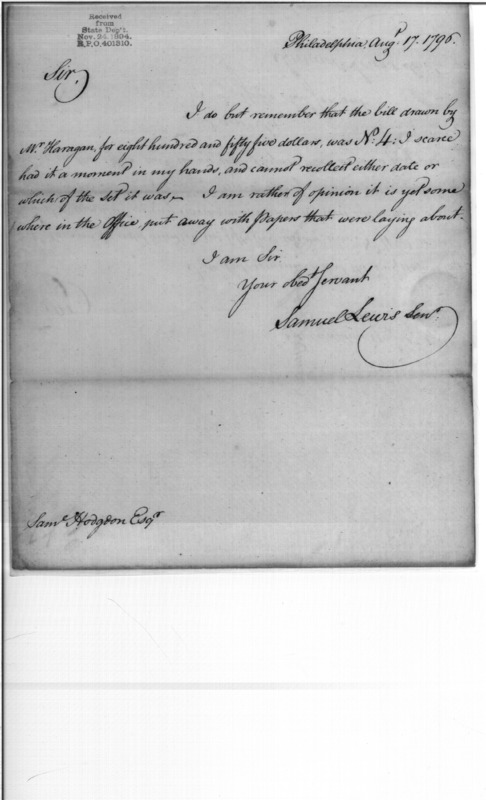 Received
from
State Dep't.
Nov. 24. 1894.
R.P.O. 401310.
Philadelphia, Augt. 17. 1796.
Sir,
I do but remember that the bill drawn by
Mr. Haragan, for eight hundred and fifty five dollars, was No. 4: I scarce
had it a moment in my hands, and cannot recollect either date or
which of the set it was. I am rather of opinion it is yet some
where in the Office put away with Papers that were laying about.
I am Sir
Your obedt. servant
Samuel Lewis Senr.
Saml. Hodgdon Esqr.